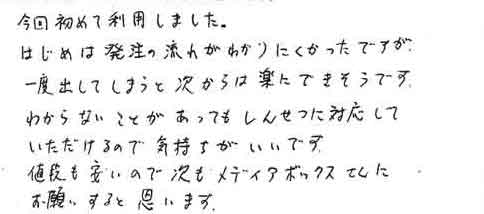 今回初めて利用しました。
はじめは発注の流れがわかりにくかったですが、
一度出してしまうと次からは楽にできそうです。
わからないことがあってもしんせつに対応して
いただけるので気持ちがいいです。
値段も安いので次もメディアボックスさんに
お願いすると思います。